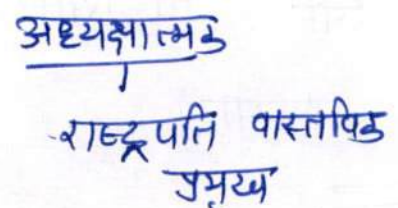 अध्यक्षात्मक
राष्ट्रपति वास्तविक
प्रमुख